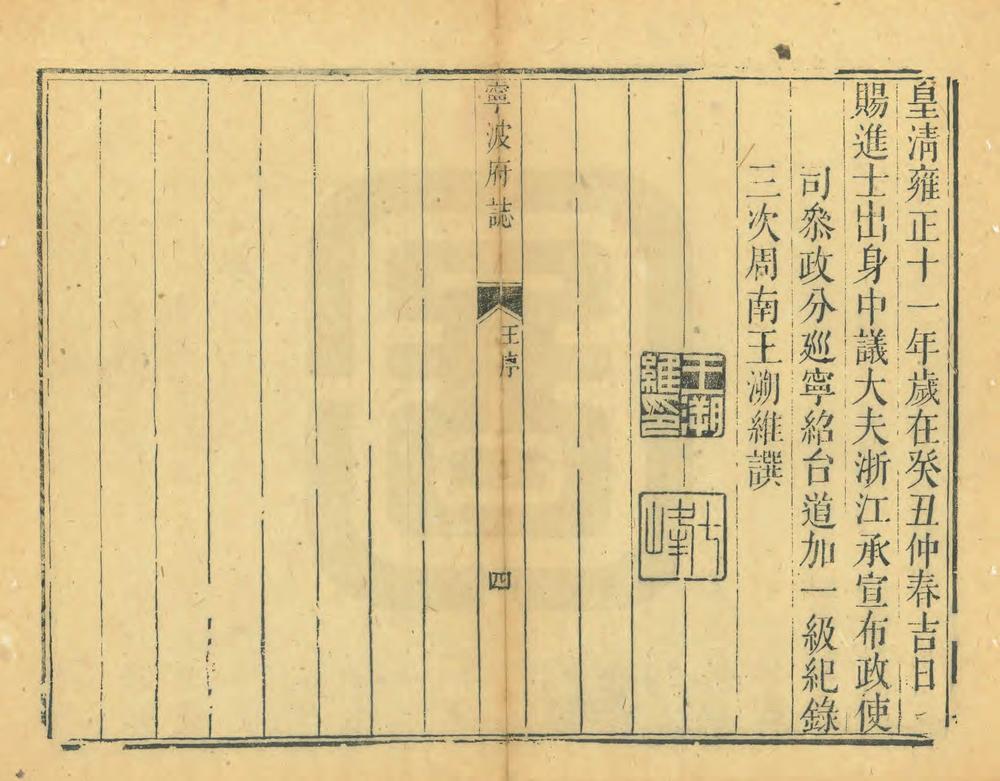 皇清雍正十一年歲在癸丑仲春吉日
賜進士出身中議大夫浙江承宣布政使
司叅政分廵寧紹台道加一級紀錄
三次周南王溯維譔
王溯
維印
寧波府誌
王序
四